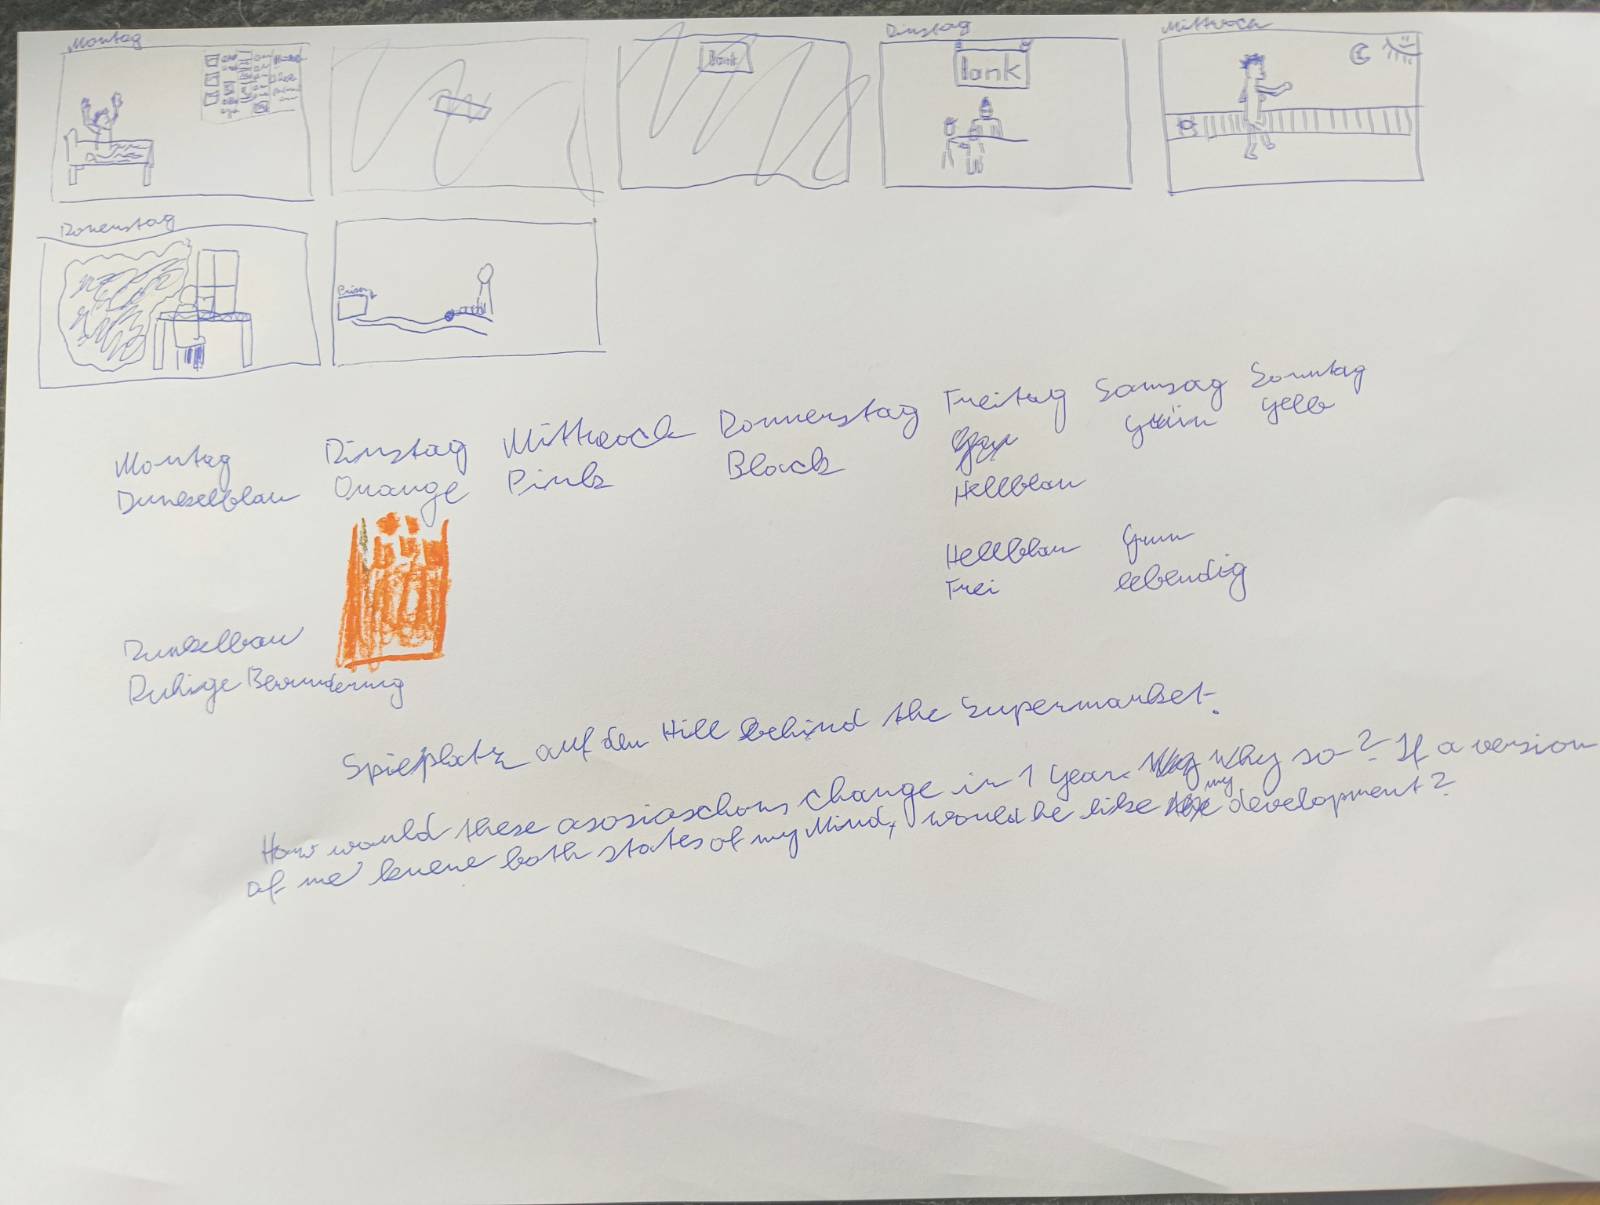 Montag
Dinstag
Mittwoch
Bank
Bank
Donerstag
Montag Dinstag Mittwoch Donnerstag Freitag Samsag Sonntag
Dunkelblau Orange Pink Black Hellblau Grün gelb
Hellblau Grun
Frei lebendig
Dunkelblau
Ruhige Bewunderung
Spielplatz auf den Hill behind the Supermarket.
How would these asosiaschons change in 1 year. Why so? If a version
of me knew both states of my Mind, would he like my development?